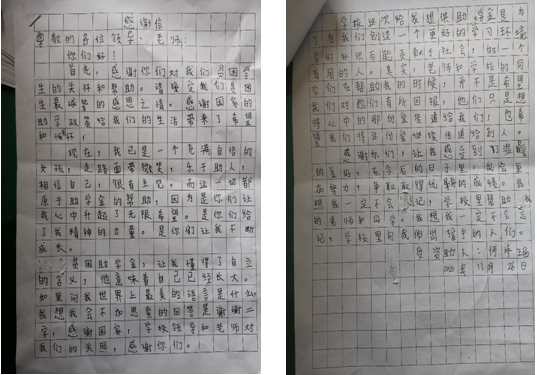 感谢信
尊敬的各位领导、老师:
你们好!
首先,感谢你们对我们贫困学
生的关怀和帮助。请接受我们贫困
生最诚挚的感恩之情。感谢国家的
助学政策给我们的生活带来了希望
和
现在,我已是一个充满自信的
女孩,走路面带微笑,乐于助人,
相信自己,很有主见。而这一切都
源于助学金的帮助,因为是你们让
我心中升起了无限希望。是你们给
了我精神的力量。是你们让我不断
成长。
贫困助学金,让我懂得了自立
的含义,他意味着自己已经长大。
如果问我世界上最美的语言是什么,
我想我会不加思索的回答是谢谢二
字,感谢国家,学校领导和老师对
我们的关照,感谢你们。
学校这次给我提供助学金是为
了给我们创造一个更好的学习环境,
学好知识有能贡献于社会,做一个
有用的人。其实,老师和学校的同
学们在帮助我的时候,并不是希望
我们对他们有所回报,他们只是想
将心中的那份爱传递给我们,也希
望我们将这份爱继续传递给别人。
感谢你们,让我感受到了温暖
的 在今后的日子里,我会更
加努力,争取取得优异的成绩。我
想我一定不会忘记,学校里帮助我
的老师和同学。我想我一定不会忘
记,学校里向我伸出援手的人们。
受资助人:何
11月26日